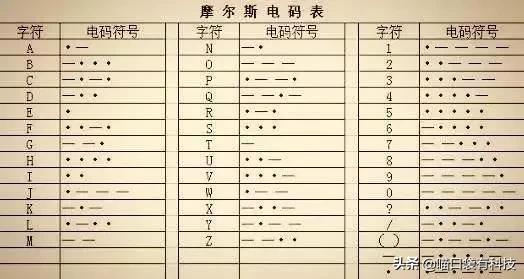 摩尔斯电码表
字符 电码符号 字符 电码符号 字符 电码符号
A • — N — • 1 • — — — —
B — • • • O — — — 2 • • — — —
C — • — • P • — — • 3 • • • — —
D — • • Q — — • — 4 • • • • —
E • R • — • 5 • • • • •
F • • — • S • • • 6 — • • • •
G — — • T — 7 — — • • •
H • • • • U • • — 8 — — — • •
I • • V • • • — 9 — — — — •
J • — — — W • — — 0 — — — — —
K — • — X — • • — ? • • — — • •
L • — • • Y — • — — / — • • — •
M — — Z — — • • ( ) — • — — • —
—
•
头条 @喵日袋有科技